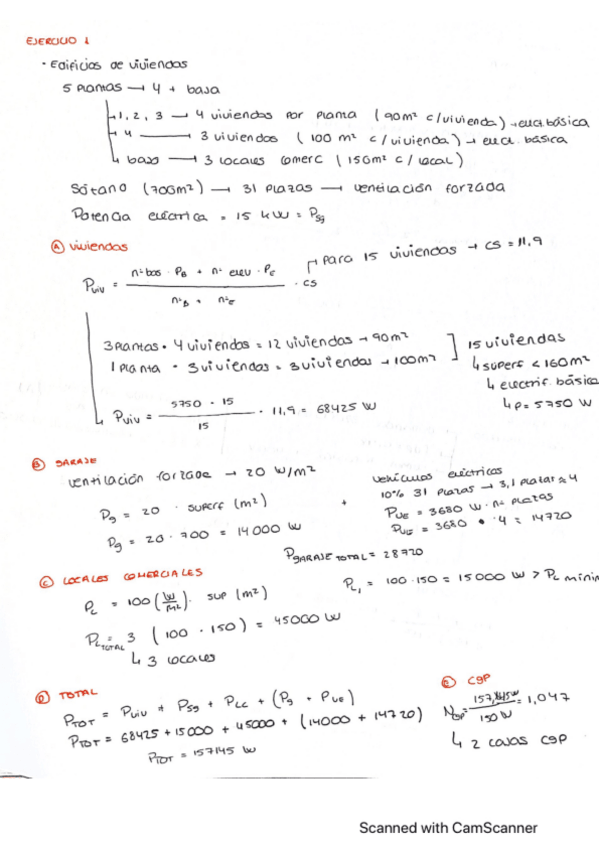 EJERCICIO 1
· Edificios de viviendas
5 plantas → 4 + baja
1, 2, 3 → 4 viviendas por planta (90m² c/vivienda) → elect. básica
4 → 3 viviendas (100 m² c/vivienda) → elect. básica
bajo → 3 locales comerc (150m² c/local)
Sótano (700m²) → 31 plazas → ventilación forzada
Potencia eléctrica = 15 kW = Psg
A viviendas
Para 15 viviendas → CS = 11,9
Pviv = nºbas · PB + nº elev · PE / nºB + nºE · CS
3 plantas · 4 viviendas = 12 viviendas → 90m²
1 planta · 3 viviendas = 3 viviendas → 100m²
15 viviendas
superf < 160m²
electrif. básica
P = 5750 W
Pviv = 5750 · 15 / 15 · 11,9 = 68425 W
B GARAJE
ventilación forzada → 20 W/m²
Pg = 20 · superf (m²)
Pg = 20 · 700 = 14000 W
+
vehículos eléctricos
10% 31 plazas → 3,1 plazas ≈ 4
PVE = 3680 W · nº plazas
PVE = 3680 · 4 = 14720
PGARAJE TOTAL = 28720
C LOCALES COMERCIALES
PL = 100 (W/m²) · sup (m²)
PL1 = 100 · 150 = 15000 W > PL mínim
PLTOTAL = 3 (100 · 150) = 45000 W
3 locales
D TOTAL
PTOT = Pviv + Psg + PLC + (Pg + PVE)
PTOT = 68425 + 15000 + 45000 + (14000 + 14720)
PTOT = 157145 W
E CGP
= 1,047
150 W
2 cajas CGP
Scanned with CamScanner